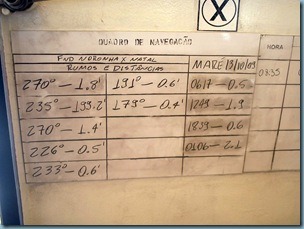 X
QUADRO DE NAVEGAÇÃO
FND NORONHA X NATAL
RUMOS E DISTÂNCIAS
MARÉ 13/10/09
HORA
270° - 1.8' 191° - 0.6' 0617 - 0.5
08:35
235° - 193.2' 179° - 0.4' 1243 - 1.9
270° - 1.4' 1839 - 0.6
226° - 0.5' 0106 - 2.1
233° - 0.6'